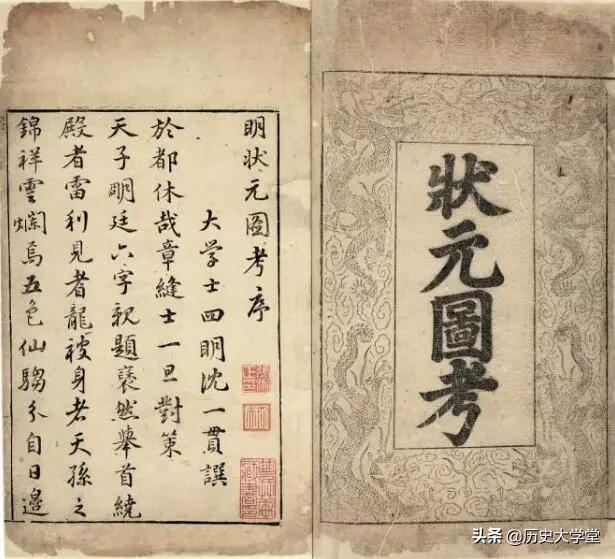 狀元圖考
明狀元圖考序
大学士四明沈一貫譔
於都休哉章縫士一旦對策
天子明廷六字親題褎然舉首繞
殿者雷利見者龍被身者天孫之
錦祥雲爛焉五色仙騶分自日邊
头条 @历史大学堂